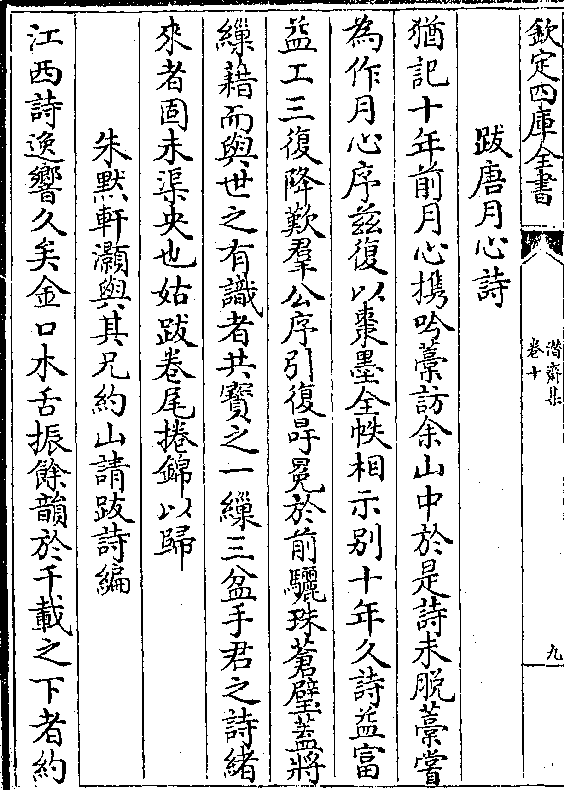 欽定四庫全書
潛齋集
卷十
九
跋唐月心詩
猶記十年前月心携吟藁訪余山中於是詩未脱藁嘗
為作月心序兹復以棗墨全帙相示别十年久詩益富
益工三復降歎羣公序引復冔冕於前驪珠蒼璧蓋將
繅藉而與世之有識者共寳之一繅三盆手君之詩緒
來者固未渠央也姑跋卷尾捲錦以歸
朱黙軒灝與其兄約山請跋詩編
江西詩逸響久矣金口木舌振餘韻於千載之下者約